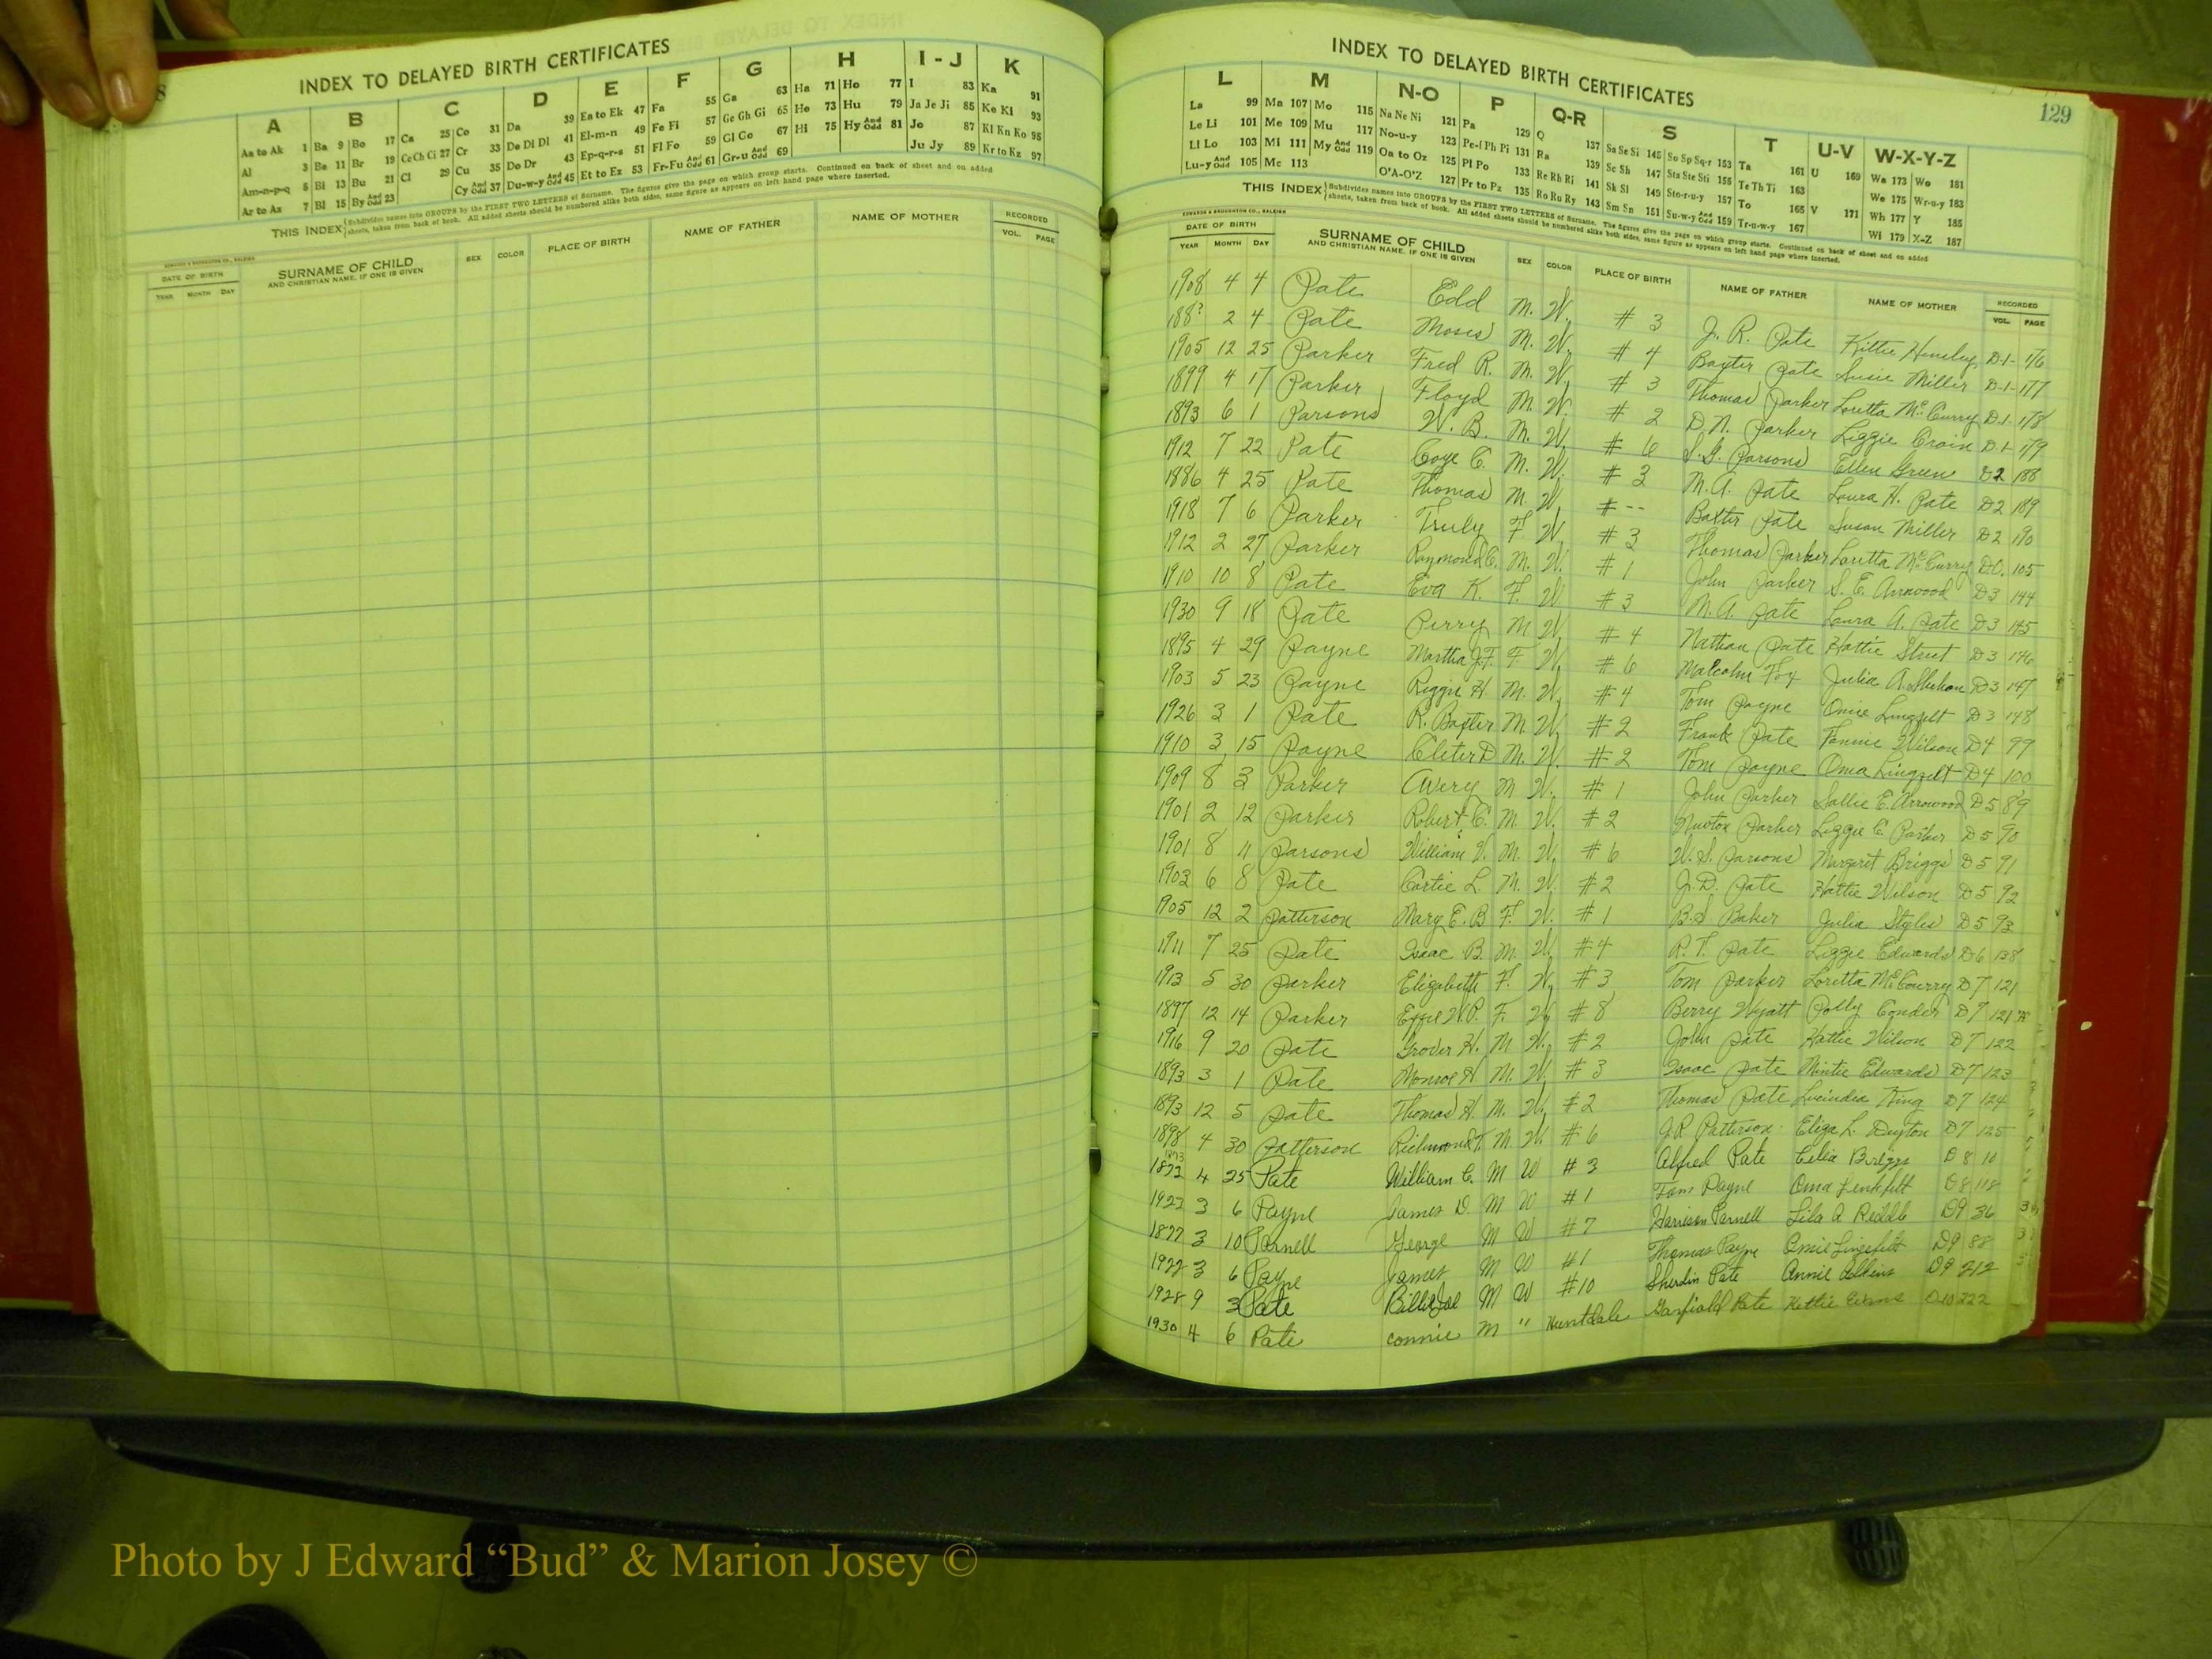 INDEX TO DELAYED BIRTH CERTIFICATES
A B C D E F G H I - J K
Aa to Ak 1 Ba 9 Bo 17 Ca 25 Co 31 Da 39 Ea to Ek 47 Fa 55 Ga 63 Ha 71 Ho 77 I 83 Ka 91
Al 3 Be 11 Br 19 Ce Ch Ci 27 Cr 33 De Di Dl 41 El-m-n 49 Fe Fi 57 Ge Gh Gi 65 He 73 Hu 79 Ja Je Ji 85 Ke Ki 93
Am-n-p-q 5 Bi 13 Bu 21 Cl 29 Cu 35 Do Dr 43 Ep-q-r-s 51 Fl Fo 59 Gl Go 67 Hi 75 Hy And Odd 81 Jo 87 Kl Kn Ko 95
Ar to Az 7 Bl 15 By And Odd 23 Cy And Odd 37 Du-w-y And Odd 45 Et to Ez 53 Fr-Fu And Odd 61 Gr-u And Odd 69 Ju Jy 89 Kr to Kz 97
THIS INDEX Subdivides names into GROUPS by the FIRST TWO LETTERS of Surname. The figures give the page on which group starts. Continued on back of sheet and on added
sheets, taken from back of book. All added sheets should be numbered alike both sides, same figure as appears on left hand page where inserted.
EDWARDS & BROUGHTON CO., RALEIGH
DATE OF BIRTH SURNAME OF CHILD SEX COLOR PLACE OF BIRTH NAME OF FATHER NAME OF MOTHER RECORDED
YEAR MONTH DAY AND CHRISTIAN NAME, IF ONE IS GIVEN VOL. PAGE
INDEX TO DELAYED BIRTH CERTIFICATES
129
L M N-O P Q-R S T U-V W-X-Y-Z
La 99 Ma 107 Mo 115 Na Ne Ni 121 Pa 129 Q 137 Sa Sc Si 145 So Sp Sq-r 153 Ta 161 U 169 Wa 173 Wo 181
Le Li 101 Me 109 Mu 117 No-u-y 123 Pe-f Ph Pi 131 Ra 139 Se Sh 147 Sta Ste Sti 155 Te Th Ti 163 We 175 Wr-u-y 183
Ll Lo 103 Mi 111 My And Odd 119 Oa to Oz 125 Pl Po 133 Re Rh Ri 141 Sk Sl 149 Sto-r-u-y 157 To 165 V 171 Wh 177 Y 185
Lu-y And Odd 105 Mc 113 O'A-O'Z 127 Pr to Pz 135 Ro Ru Ry 143 Sm Sn 151 Su-w-y And Odd 159 Tr-u-w-y 167 Wi 179 X-Z 187
THIS INDEX Subdivides names into GROUPS by the FIRST TWO LETTERS of Surname. The figures give the page on which group starts. Continued on back of sheet and on added
sheets, taken from back of book. All added sheets should be numbered alike both sides, same figure as appears on left hand page where inserted.
EDWARDS & BROUGHTON CO., RALEIGH
DATE OF BIRTH SURNAME OF CHILD SEX COLOR PLACE OF BIRTH NAME OF FATHER NAME OF MOTHER RECORDED
YEAR MONTH DAY AND CHRISTIAN NAME, IF ONE IS GIVEN VOL. PAGE
1908 4 4 Pate Edd M. W. # 3 J. R. Pate Kittie Hensley D-1- 176
188? 2 4 Pate Moses M. W. # 4 Baxter Pate Susie Miller D-1- 177
1905 12 25 Parker Fred R. M. W. # 3 Thomas Parker Loretta McCurry D-1- 178
1899 4 17 Parker Floyd M. W. # 2 D. N. Parker Lizzie Crain D-1- 179
1893 6 1 Parsons W. B. M. W. # 6 S. G. Parsons Ellen Green D2 188
1912 7 22 Pate Coye C. M. W. # 3 M. A. Pate Laura H. Pate D2 189
1886 4 25 Pate Thomas M. W # -- Baxter Pate Susan Miller D2 190
1918 7 6 Parker Truly F W. # 3 Thomas Parker Loretta McCurry 105
1912 2 27 Parker Raymond C. M. W. # 1 John Parker S. E. Arrowood D3 144
1910 10 8 Pate Eva K. F. W. # 3 M. A. Pate Laura A. Pate D3 145
1930 9 18 Pate Perry M W. # 4 Nathan Pate Hattie Street D3 146
1895 4 29 Payne Martha J. F. F W. # 6 Malcolm Fox Julia A. Shehan D3 147
1903 5 23 Payne Reggie H. M. W. # 4 Tom Payne D3 148
1926 3 1 Pate R. Baxter M. W. # 2 Frank Pate Fannie Wilson D4 99
1910 3 15 Payne Cleter D M. W. # 2 Tom Payne Oma Lingfelt D4 100
1909 8 3 Parker Avery M W. # 1 John Parker Sallie E. Arrowood D5 89
1901 2 12 Parker Robert C. M. W. # 2 Newton Parker Lizzie C. Parker D5 90
1901 8 11 Parsons William V. M. W. # 6 W. S. Parsons Margaret Briggs D5 91
1903 6 8 Pate Certie L. M. W. # 2 J. D. Pate Hattie Wilson D5 92
1905 12 2 Patterson Mary E. B F. W. # 1 B. S Baker Julia Styles D5 93
1911 7 25 Pate Isaac B. M. W. # 4 R. T. Pate Lizzie Edwards D6 138
1913 5 30 Parker Elizabeth F. W. # 3 Tom Parker Loretta McCourry D7 121
1897 12 14 Parker Effie W. P. F. W. # 8 Berry Wyatt Polly Conder D7 121 A
1916 9 20 Pate Grover H. M. W. # 2 John Pate Hattie Wilson D7 122
1893 3 1 Pate Monroe H. M. W. # 3 Isaac Pate Mintie Edwards D7 123
1893 12 5 Pate Thomas H. M. W. # 2 Thomas Pate Lucindea King D7 124
1898 4 30 Patterson Richmond T. M. W. # 6 J. R Patterson Eliza L. Deyton D7 125
1873
1872 4 25 Pate William C. M W # 3 Alfred Pate Celia Briggs D8 10
1922 3 6 Payne James D. M W # 1 Tom Payne Oma D8 118
1877 3 10 Parnell George M W # 7 Harrison Parnell Lila A D9 36
1922 3 6 Payne James M W #1 Thomas Payne D9 88
1928 9 3 Pate Billie Joe M W #10 Sherdin Pate Annie Adkins D9 212
1930 4 6 Pate Connie M " Huntdale Garfield Pate Hettie Evans D10 222
Photo by J Edward “Bud” & Marion Josey ©